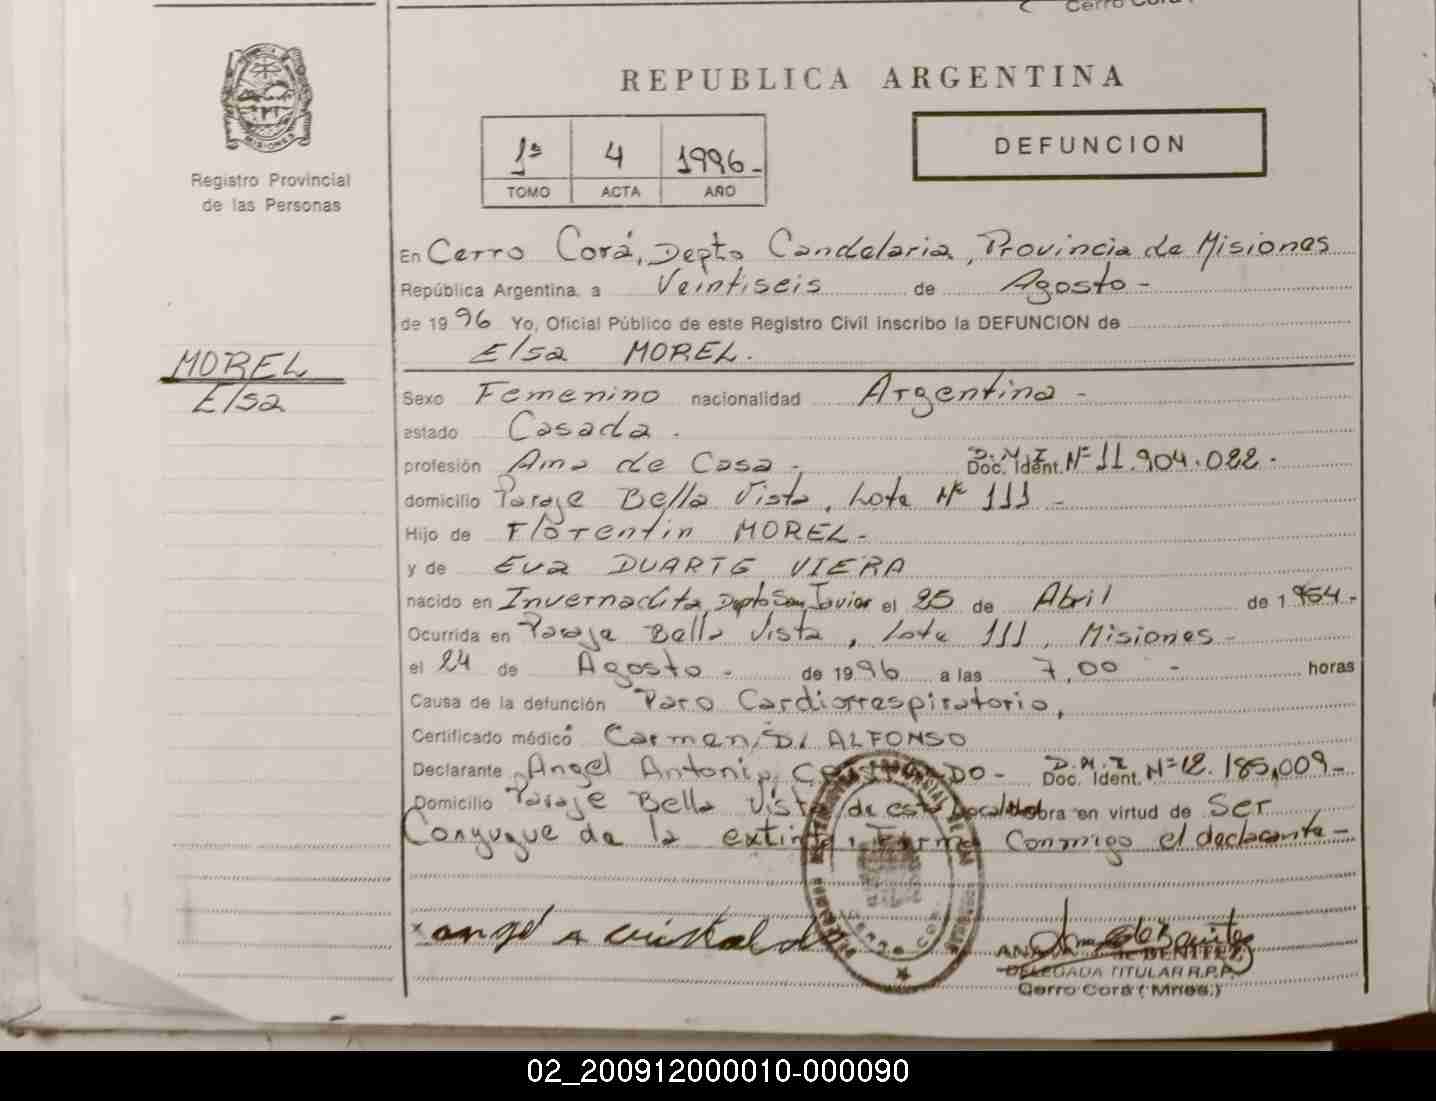 Cerro Cora
REPUBLICA ARGENTINA
1º 4 1996-
TOMO ACTA AÑO
DEFUNCION
MISIONES
Registro Provincial
de las Personas
En Cerro Corá, Depto Candelaria, Provincia de Misiones
República Argentina, a Veintiseis de Agosto -
de 1996 Yo, Oficial Público de este Registro Civil inscribo la DEFUNCION de
Elsa MOREL.
MOREL
Elsa
Sexo Femenino nacionalidad Argentina -
estado Casada.
profesión Ama de Casa - D.N.I. Doc. Ident. Nº 11.904.022.
domicilio Paraje Bella Vista, Lote Nº 111 -
Hijo de Florentin MOREL-
y de Eva DUARTE VIERA
nacido en Invernadita, Depto San Javier el 25 de Abril de 1954-
Ocurrida en Paraje Bella Vista, Lote 111, Misiones -
el 24 de Agosto - de 1996 a las 7,00 - horas
Causa de la defunción Paro Cardiorrespiratorio,
Certificado médico Carmen, D. ALFONSO
Declarante Angel Antonio, CRISTALDO - D.N.I. Doc. Ident. Nº 12.185,009-
Domicilio Paraje Bella Vista de esta Localidad obra en virtud de Ser
Conyugue de la extinta, Firma Conmigo el declarante-
x angel A cristaldo
DE BENITEZ
DELEGADA TITULAR R.P.P.
Cerro Corá (Mnes.)
02_200912000010-000090